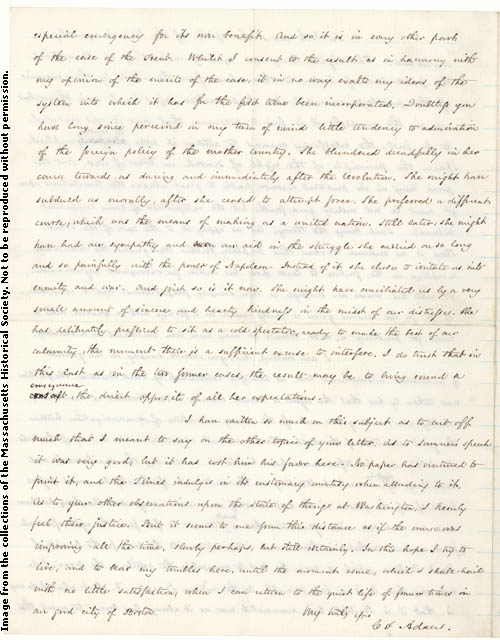 especial emergency for its own benefit. And so it is in every other part
of the case of the Trent. Whilst I consent to the result as in harmony with
my opinion of the merits of the case, it in no way exalts my ideas of the
system into which it has for the first time been incorporated. Doubtless you
have long since perceived in my turn of mind little tendency to admiration
of the foreign policy of the mother country. She blundered dreadfully in her
course towards us during and immediately after the Revolution. She might have
subdued us morally, after she ceased to attempt force. She preferred a different
course, which was the means of making us a united nation. Still later, she might
have had our sympathy and even our aid in the struggle she carried on so long
and so painfully with the power of Napoleon. Instead of it she chose to irritate us into
enmity and war. And just so is it now. She might have conciliated us by a very
small amount of sincere and hearty kindness in the midst of our distresses. She
has deliberately preferred to sit as a cold spectator, ready to make the best of our
calamity, the moment there is a sufficient excuse to interfere. I do trust that in
this last as in the two former cases, the result may be to bring round a
consequence
the direct opposite of all her expectations.
I have written so much on this subject as to cut off
much that I meant to say on the other topics of your letter. As to Sumner's speech
it was very good, but it has cost him his favor here. No paper has ventured to
print it, and the Times indulges in its customary courtesy when alluding to it.
As to your other observations upon the state of things at Washington, I keenly
feel their justice. But it seems to me from this distance as if the course was
improving all the time, slowly perhaps, but still certainly. In this hope I try to
live, and to bear my troubles here, until the moment come, which I shall hail
with no little satisfaction, when I can return to the quiet life of former times in
our good city of Boston.
My
C F Adams.
Image from the collections of the Massachusetts Historical Society. Not to be reproduced without permission.